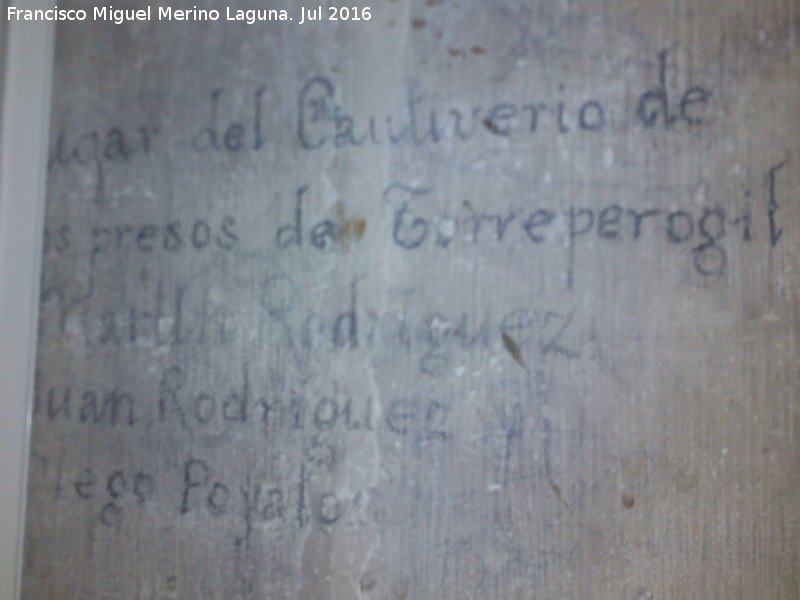 Francisco Miguel Merino Laguna. Jul 2016
ugar del Cautiverio de
os presos de Torreperogil
Martin Rodriguez,
Juan Rodriguez y
Diego Poyatos